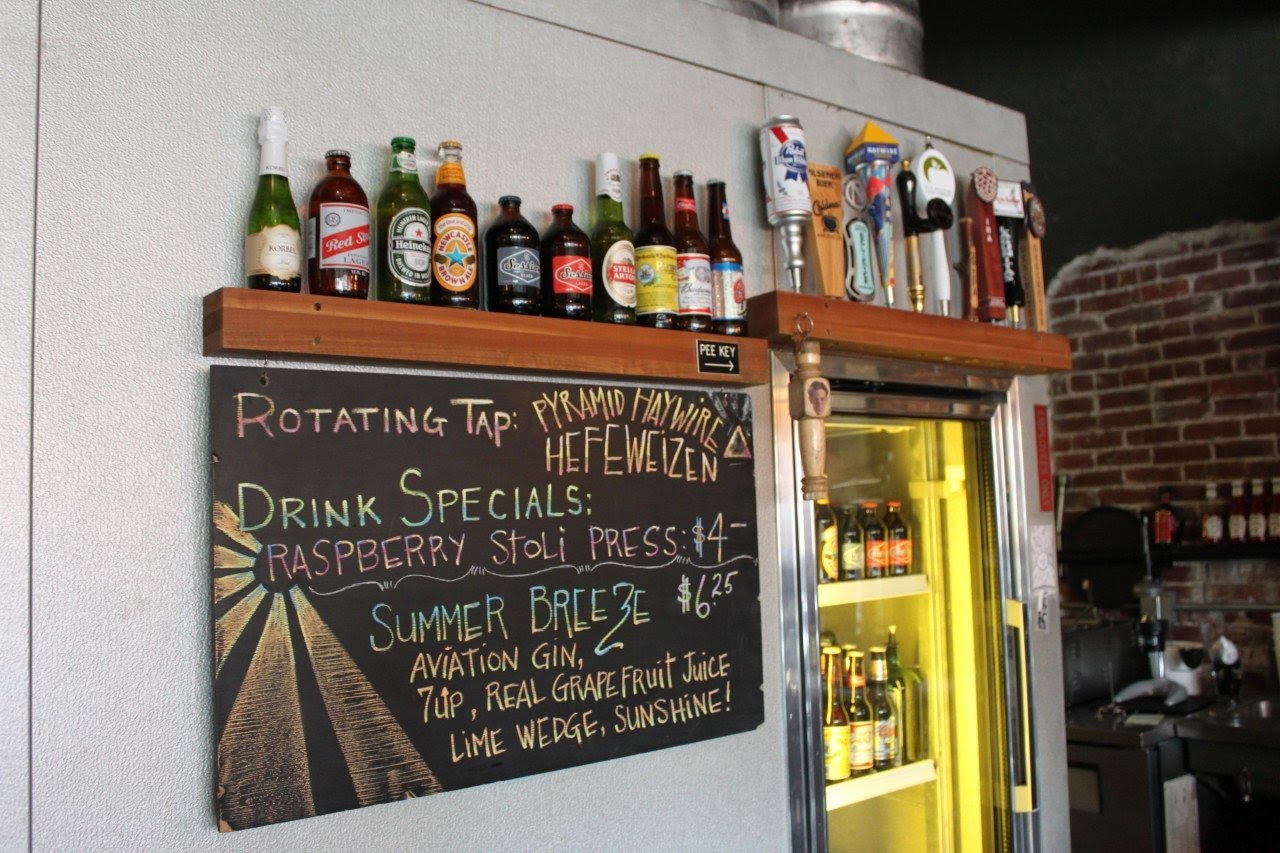 KORBEL
Red Stripe
LAGER
Heineken
NEWCASTLE
BROWN ALE
Session
Session
LAGER
STELLA
ARTOIS
Budweiser
Pabst
Blue Ribbon
PILSENER
BIER
HAYWIRE
PEE KEY
ROTATING TAP: PYRAMID HAYWIRE
HEFEWEIZEN
DRINK SPECIALS:
RASPBERRY STOLI PRESS: $4-
SUMMER BREEZE $6.25
AVIATION GIN,
7UP, REAL GRAPEFRUIT JUICE
LIME WEDGE, SUNSHINE!
EMPLOYEES ONLY